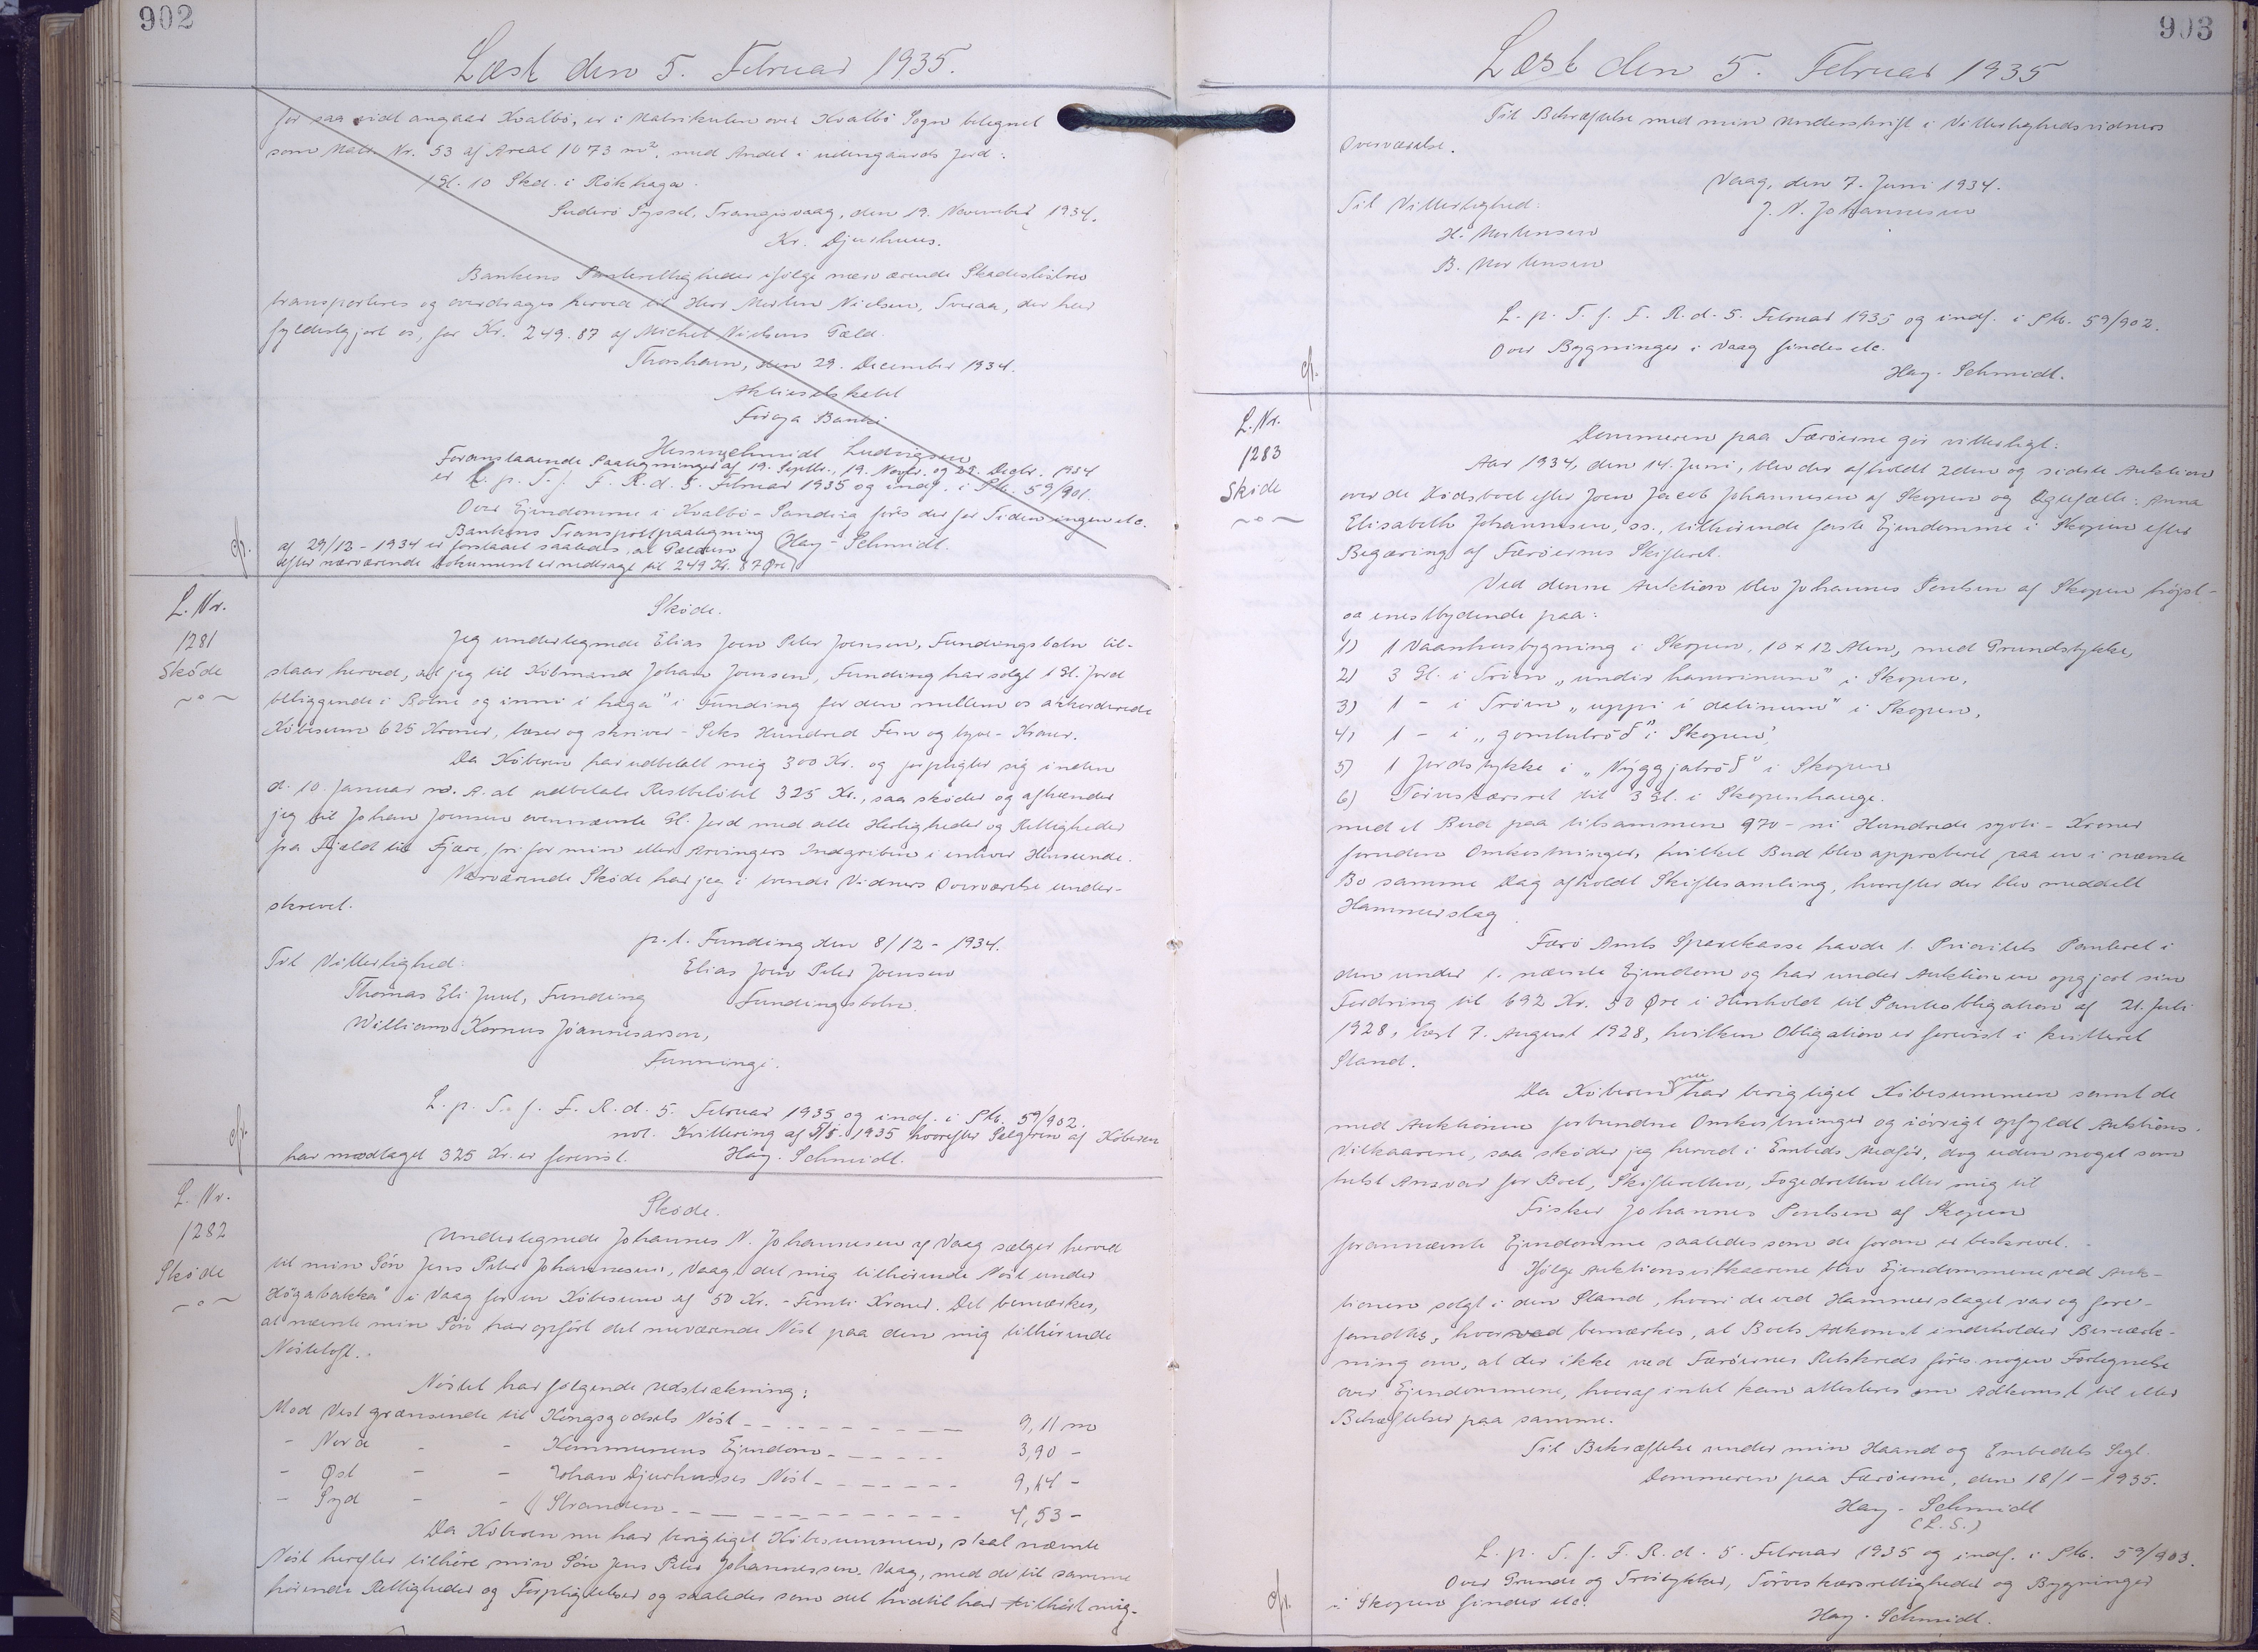 902
Læst den 5. Februar 1935.
for saa vidt angaar Kvalbö, er i Matrikulen over Kvalbö Sogn betegnet
som Matr. Nr. 53 af Areal 1073 m², med Andel i udengaards Jord:
1 Gl. 10 Skd. i Rókhaga.
Suderö Syssel, Trangisvaag, den 19. November 1934.
Kr. Djurhuus.
Bankens Panterettigheder ifølge nærværende Skadesløsbrev
transporteres og overdrages herved til Herr Morten Nielsen, Tveraa, der har
fyldestgjort os, for Kr. 249.87 af Michel Nielsens Gæld.
Thorshavn, den 29. December 1934.
Aktieselskabet
Føroya Banki
Hessingschmidt Ludvigsen
Foranstaaende Paategninger af 19. Septbr., 19. Novbr. og 29. Decbr. 1934
er L. p. T. f. F. R. d. 5. Februar 1935 og indf. i Ptb. 59/901.
Over Ejendomme i Kvalbö-Sandvig föres der før Tiden ingen etc.
Bankens Transportpaategning
af 29/12-1934 er forstaaet saaledes, at Gælden Hay-Schmidt.
efter nærværende Dokument er nedbragt til 249 Kr. 87 Øre
L. Nr.
1281
Sköde
Sköde.
Jeg undertegnede Elias Joen Peter Joensen, Fundingsbotn til-
staar herved, at jeg til Köbmand Johan Joensen, Funding har solgt 1 Gl. Jord
beliggende i Botni og inni í haga" i Funding for den mellem os akkorderede
Köbesum 625 Kroner, læser og skriver - Seks Hundred Fem og tyve - Kroner.
Da Köberen har udbetalt mig 300 Kr. og forpligter sig inden
d. 10. Januar n. A. at udbetale Restbelöbet 325 Kr., saa sköder og afhænder
jeg til Johan Joensen ovennævnte Gl. Jord med alle Herligheder og Rettigheder
fra Fjæld til Fjære, fri for min eller Arvingers Indgriben i enhver Henseende.
Nærværende Sköde har jeg i tvende Vidners Overværelse under-
skrevet.
p.t. Funding den 8/12 - 1934.
Til Vitterlighed: Elias Joen Peter Joensen
Thomas Eli Juul, Funding Fundingsbotn.
William Kornus Jóannesarson,
Funningi.
L. p. T. f. F. R. d. 5. Februar 1935 og indf. i Ptb. 59/902.
not. Kvittering af 5/1-1935 hvorefter Sælgeren af Köberen
har modtaget 325 Kr. er forevist. Hay-Schmidt.
L. Nr.
1282
Sköde
Sköde.
Undertegnede Johannes N. Johannesen af Vaag sælger herved
til min Sön Jens Peter Johannesen, Vaag det mig tilhörende Nöst under
Högabakka" i Vaag for en Köbesum af 50 Kr. - Femti Kroner. Det bemærkes,
at nævnte min Sön har opfört det nuværende Nöst paa den mig tilhörende
Nöstetoft.
Nöstet har følgende Udstrækning:
Mod Vest grænsende til Kongsgodsets Nöst 9,11 m
- Nord - - Kommunens Ejendom 3,90 -
- Øst - - Johan Djurhusses Nöst 9,14 -
- Syd - - Stranden 4,53 -
Da Köberen nu har berigtiget Köbesummen, skal nævnte
Nöst herefter tilhöre min Sön Jens Peter Johannessen, Vaag, med de til samme
hörende Rettigheder og Forpligtelser og saaledes som det hidtil har tilhört mig.
903
Læst den 5. Februar 1935
Til Bekræftelse med min Underskrift i Vitterlighedsvidners
Overværelse.
Vaag, den 7. Juni 1934.
Til Vitterlighed: J. N. Johannesen
H. Mortensen
B. Mortensen
L. p. T. f. F. R. d. 5. Februar 1935 og indf. i Ptb. 59/902.
Over Bygninger i Vaag findes etc.
Hay-Schmidt.
L. Nr.
1283
Sköde
Dommeren paa Færöerne gör vitterligt:
Aar 1934, den 14. Juni, blev der afholdt 2den og sidste Auktion
over de Dödsboet efter Joen Jacob Johannesen af Skopun og Ægtefælle: Anna
Elisabeth Johannesen, ss., tilhörende faste Ejendomme i Skopun efter
Begæring af Færöernes Skifteret.
Ved denne Auktion blev Johannes Poulsen af Skopun höjst-
og enestbydende paa:
1) 1 Vaanhusbygning i Skopun, 10 x 12 Alen, med Grundstykke,
2) 3 Gl. i Tröen „undir hamrinum" i Skopun,
3) 1 - i Tröen „uppi í dalinum" i Skopun,
4) 1 - i „gomlutröð" i Skopun,
5) 1 Jordstykke i „Nýggjutröð" i Skopun
6) Törveskærsret til 3 Gl. i Skopunhauge.
med et Bud paa tilsammen 970 - ni Hundrede syvti - Kroner
foruden Omkostninger, hvilket Bud blev approberet paa en i nævnte
Bo samme Dag afholdt Skiftesamling, hvorefter der blev meddelt
Hammerslag.
Færö Amts Sparekasse havde 1. Prioritets Panteret i
den under 1. nævnte Ejendom og har under Auktionen opgjort sin
Fordring til 692 Kr. 50 Øre i Henhold til Panteobligation af 21. Juli
1928, læst 7. August 1928, hvilken Obligation er forevist i kvitteret
Stand.
Da Köberen nu har berigtiget Köbesummen samt de
med Auktionen forbundne Omkostninger og iövrigt opfyldt Auktions-
Vilkaarene, saa sköder jeg herved i Embeds Medför, dog uden noget som
helst Ansvar for Boet, Skifteretten, Fogedretten eller mig til
Fisker Johannes Poulsen af Skopun
forannævnte Ejendomme saaledes som de foran er beskrevet.
Ifölge Auktionsvilkaarene blev Ejendommene ved Auk-
tionen solgt i den Stand, hvori de ved Hammerslaget var og fore-
fandtes, hvorved bemærkes, at Boets Adkomst indeholder Bemærk-
ning om, at der ikke ved Færöernes Retskreds föres nogen Fortegnelse
over Ejendommene, hvoraf intet kan attesteres om Adkomst til eller
Behæftelser paa samme.
Til Bekræftelse under min Haand og Embedets Segl.
Dommeren paa Færöerne, den 18/1 - 1935.
Hay-Schmidt
(L.S.)
L. p. T. f. F. R. d. 5. Februar 1935 og indf. i Ptb. 59/903.
Over Grunde og Tröstykker, Törveskærsrettigheder og Bygninger
i Skopun findes etc.
Hay-Schmidt.